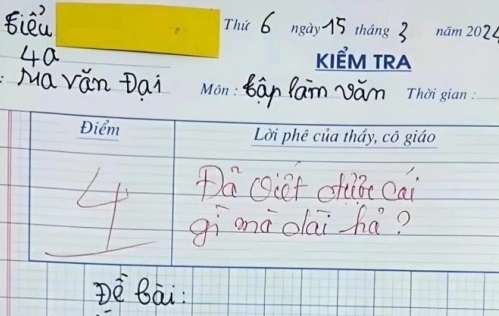 Tiểu
Thứ 6 ngày 15 tháng 3 năm 2024
4a
KIỂM TRA
: Ma văn Đại
Môn : tập làm văn Thời gian :
Điểm
Lời phê của thầy, cô giáo
4
Đã viết được cái
gì mà dài hả ?
Đề bài :